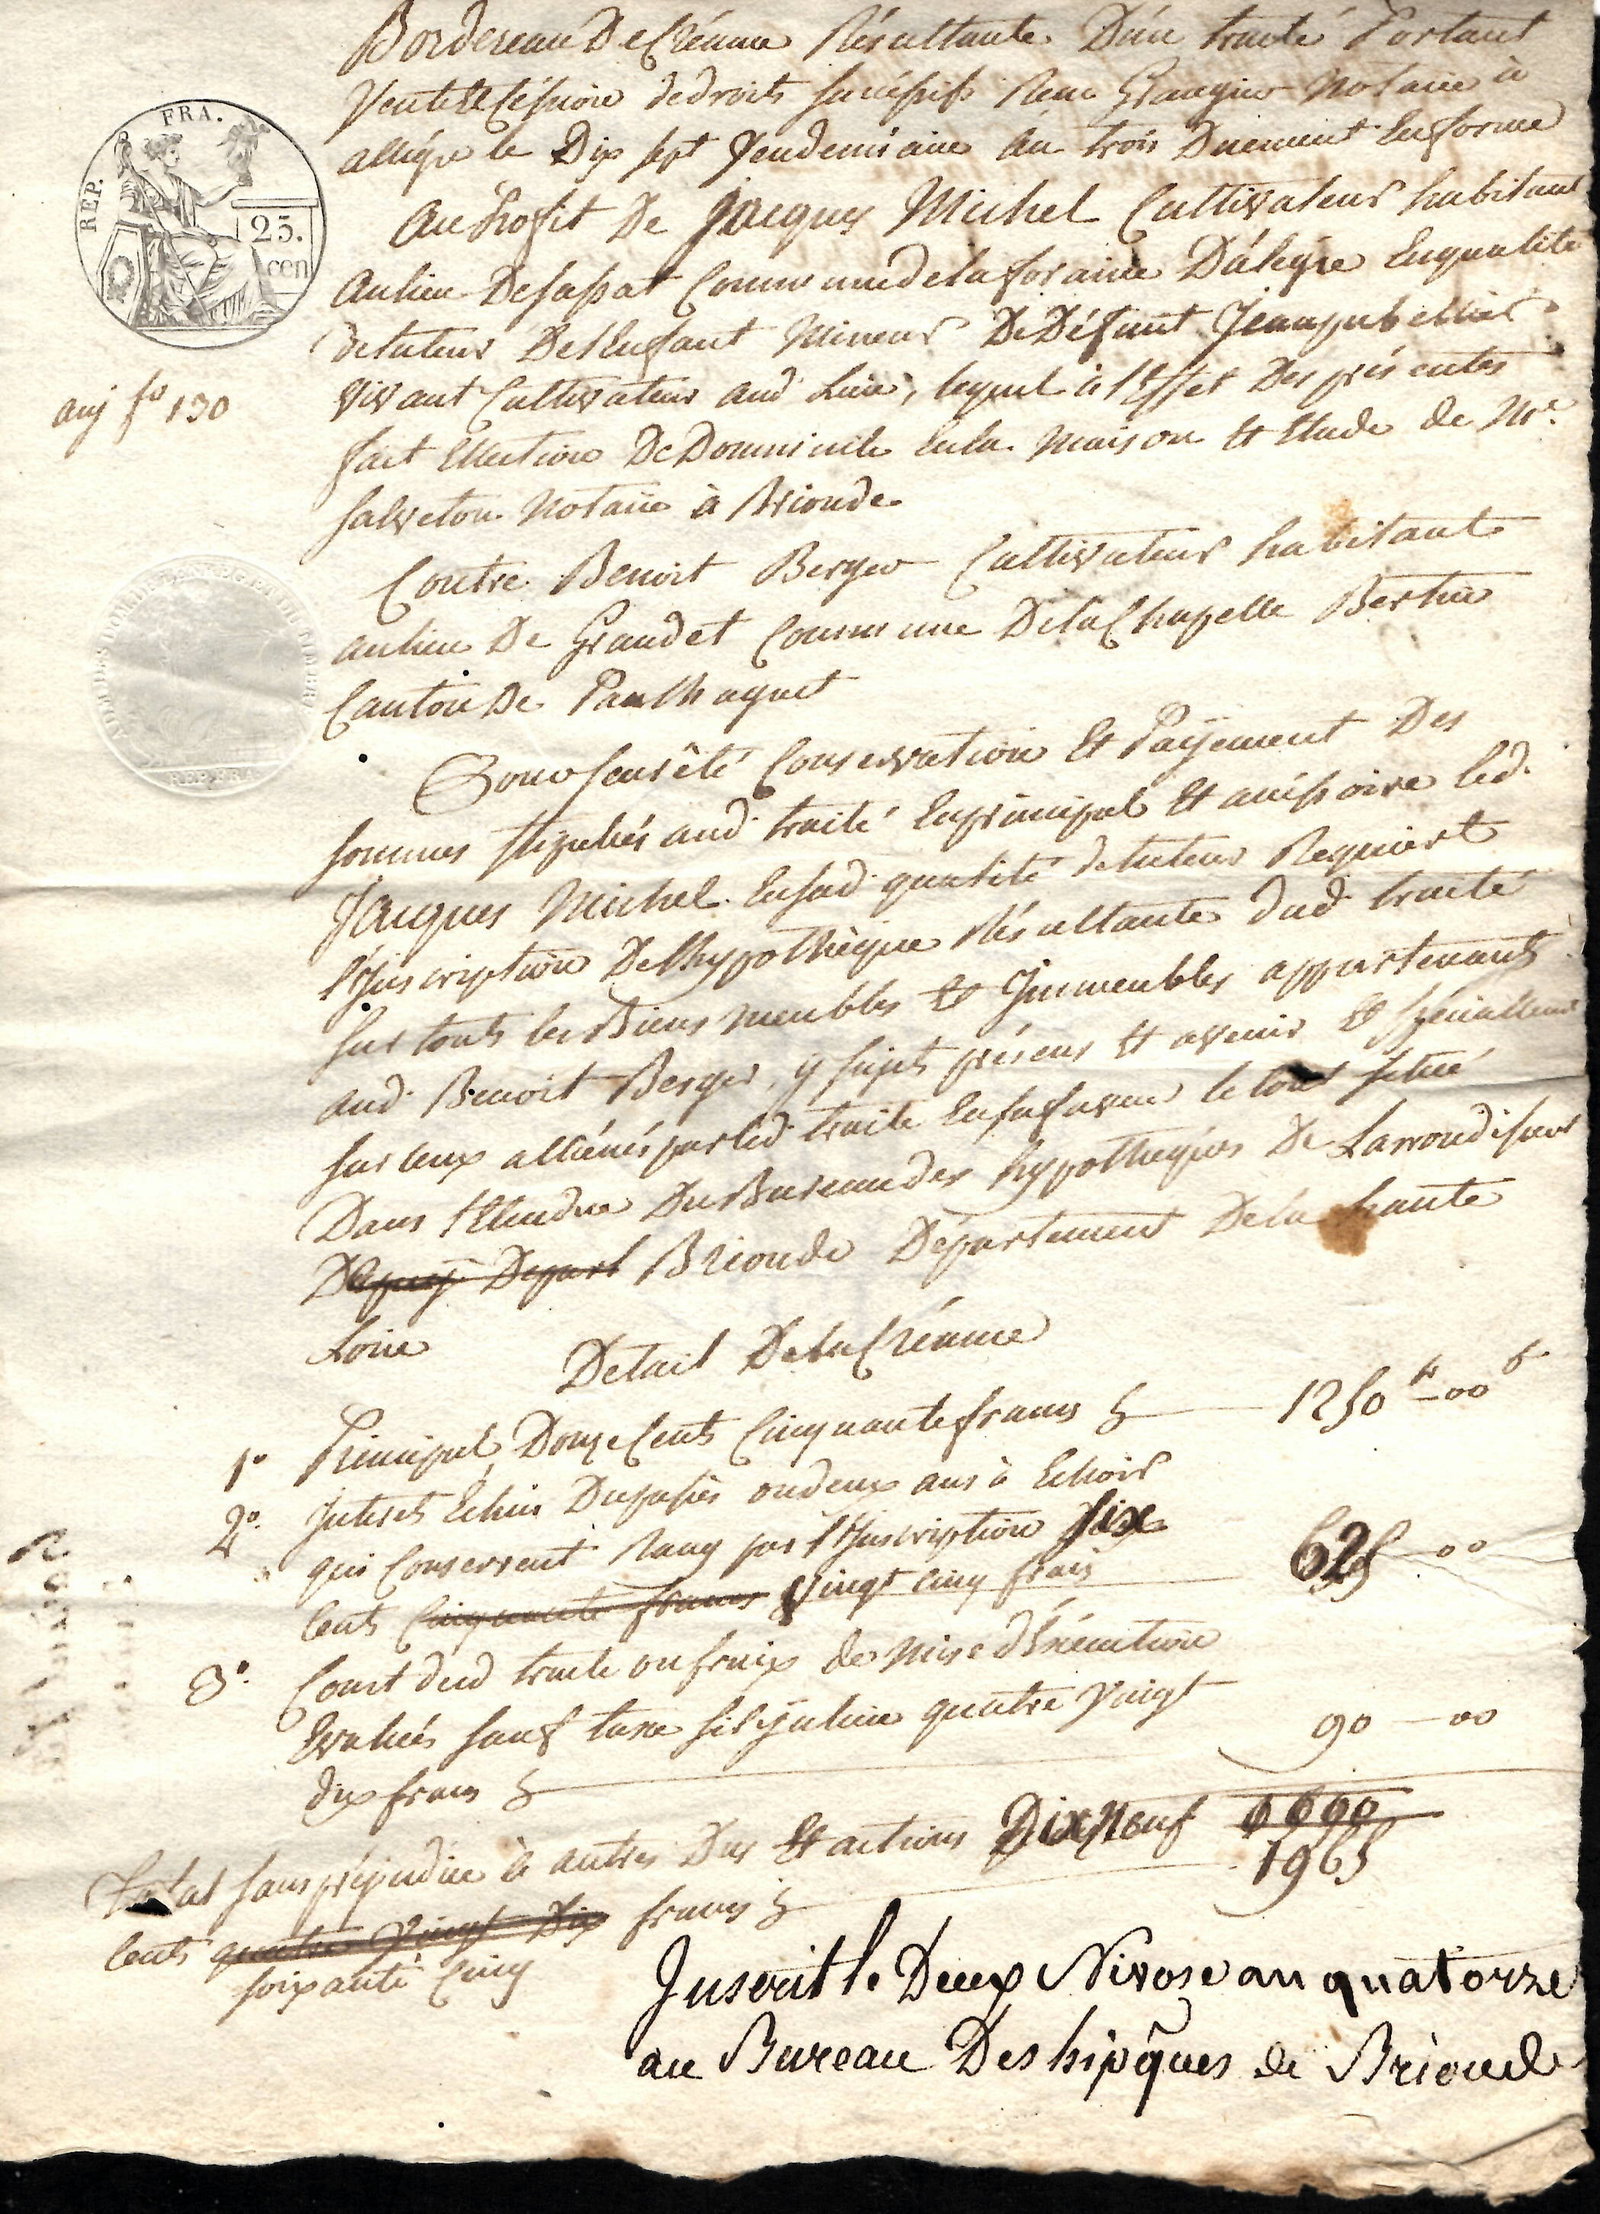 Bordereau De Créance Résultante D'un traité Portant
Vente Et Cession de droits successifs Reçu Grangier Notaire à
allègre le Dix sept Vendemiaire an trois Duement En forme
REP. FRA.
25.
cen
Au Profit De Jacques Michel Cultivateur habitant
Au lieu De Sassat Commune de la foraine D'alègre En qualité
de tuteur De l'Enfant Mineur De Défunt Jean
Vivant Cultivateur aud. Lieu, lequel à l'Effet Des présentes
fait Election De Domicile En la Maison Et Etude de Me.
Salveton Notaire à Brioude
fo 130
Contre Benoit Berger Cultivateur habitant
au lieu De Graudet Commune De la Chapelle Bertin
Canton De Paulhaguet
REP. FRA.
Pour Seurêté Conservation Et Payement Des
Sommes Stipulées aud. traité En principal Et accessoire led.
Jacques Michel En sad. qualité de tuteur Requiert
l'Inscription De l'hypothèque Résultante dud. traité
Sur touts les Biens meubles Et Immeubles appartenants
aud. Benoit Berger, y sujets présens Et avenir Et
Sur ceux alliénés par led. traité En sa faveur le tout situé
Dans l'Etendue Du Bureau des hypothèques De
Brioude Département De la haute
Loire
Detail De la Créance
1o Principal, Douze Cents Cinquante francs 1250 00
2o. Interets Echus Du passés ou deux ans à Echoir
qui Conservent Rang par l'Inscription Six
Cents Cinquante francs Vingt cinq frans 625 00
3o. Cout dud. traité ou fraix de Mise d'Exécution
Evalués sauf taxe quatre Vingt
dix francs 90 00
total Sans préjudice à autres Dus Et actions Dix Neuf
1965
Cents quatre Vingt Dix francs
soixante Cinq
Inscrit le Deux Nivose an quatorze
au Bureau Des hipques de Brioude